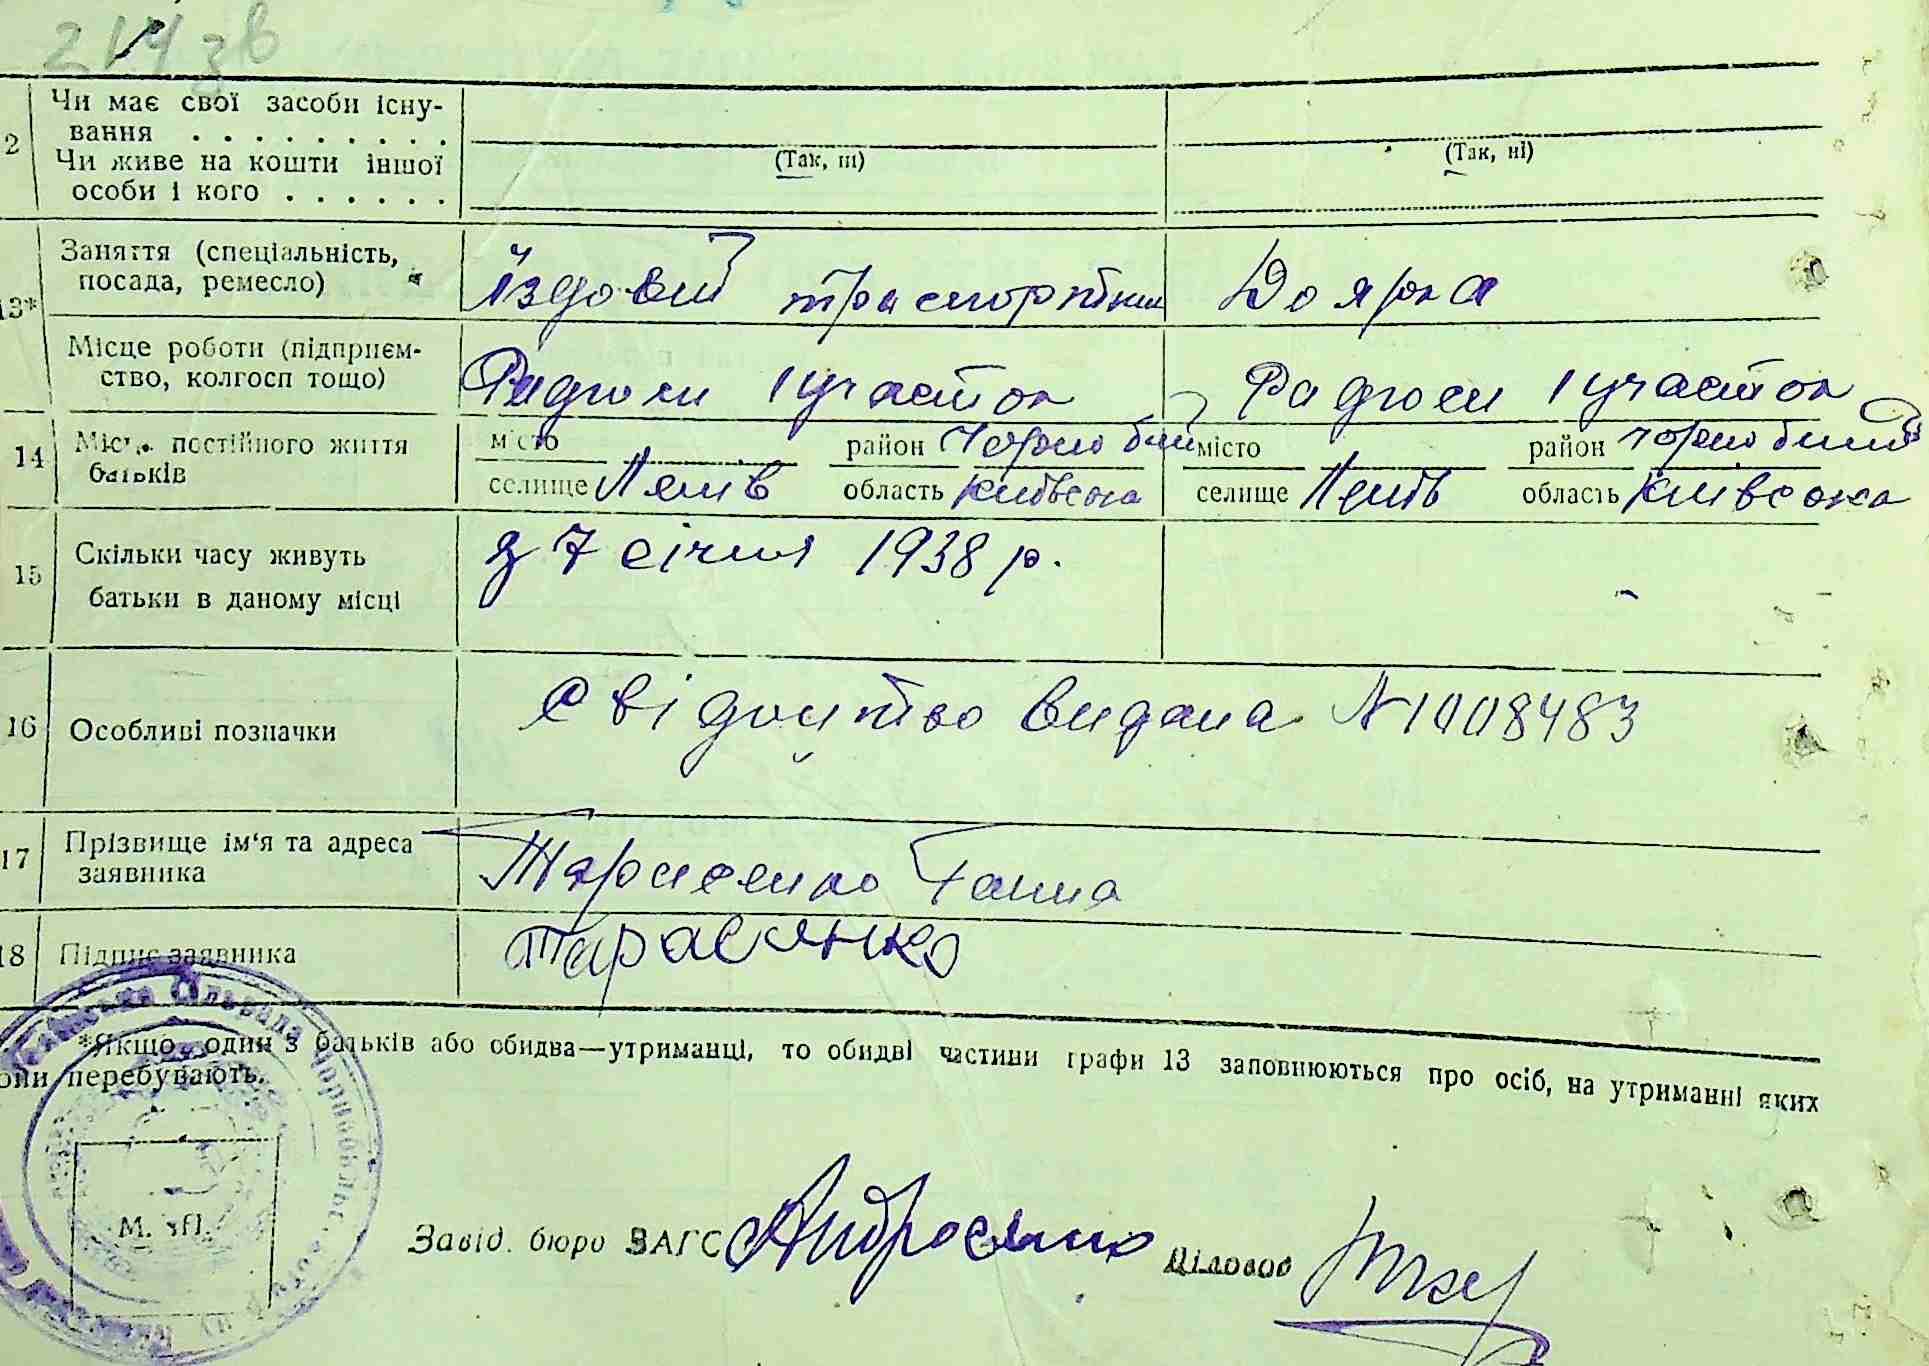 214 зв
2 Чи має свої засоби існу-
вання . . . . . . . . .
(Так, ні) (Так, ні)
Чи живе на кошти іншої
особи і кого . . . . . .
13* Заняття (спеціальність,
посада, ремесло)
Їздовий Доярка
Місце роботи (підприєм-
ство, колгосп тощо)
Радгосп 1 участок Радгосп 1 участок
14 Місце постійного життя
батьків
місто район Чорнобил місто район Чорнобил
селище Лелів область Київська селище Лелів область Київська
15 Скільки часу живуть
батьки в даному місці
з 7 січня 1938 р.
16 Особливі позначки
Свідоцтво видана №1008483
17 Прізвище ім'я та адреса
заявника
Тарасенко Ганна
18 Підпис заявника
Тарасенко
*Якщо один з батьків або обидва—утриманці, то обидві частини графи 13 заповнюються про осіб, на утриманні яких
вони перебувають.
М. П.
Завід. бюро ЗАГС Андросенко Діловод